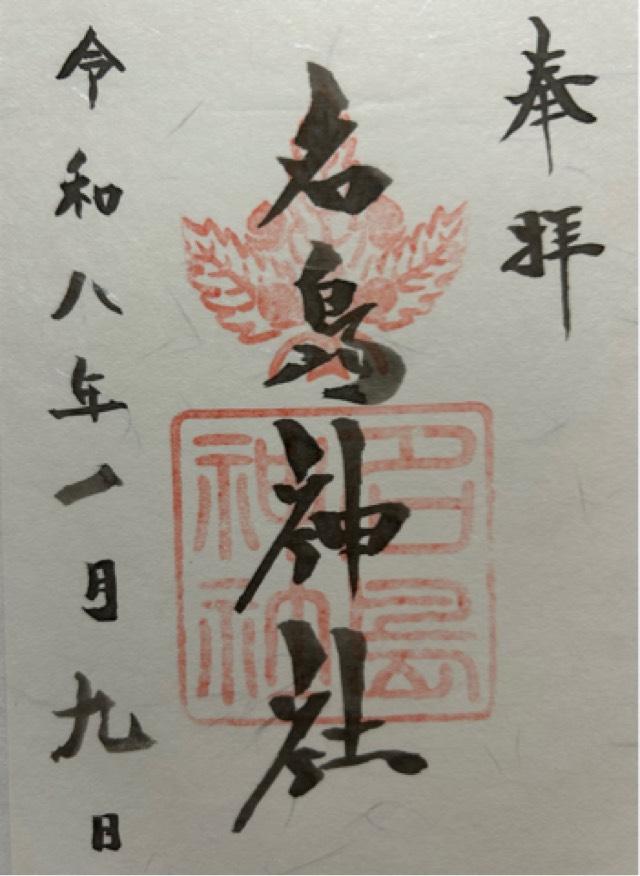 奉拝
名島神社
令和八年一月九日
名島神社